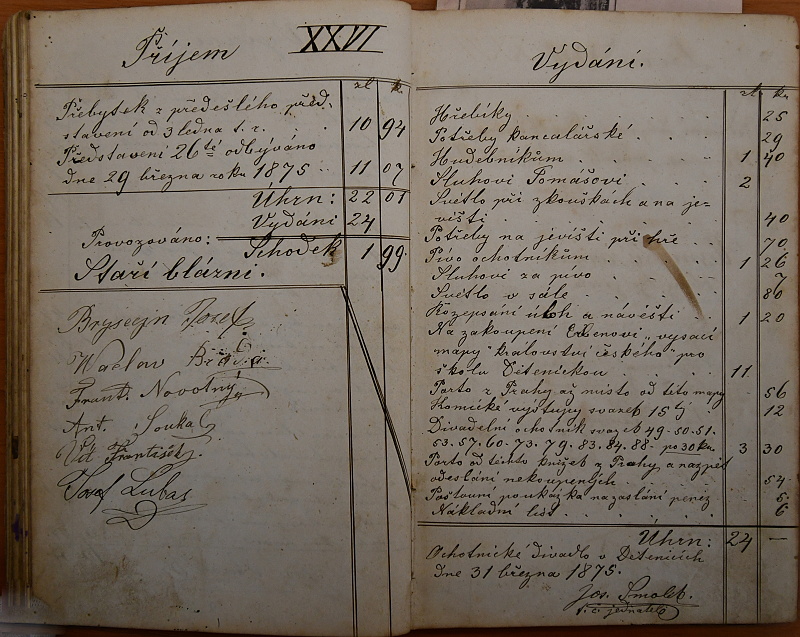 XXVI
Příjem
zl. k.
Přebytek z předešlého před-
stavení od 3 ledna t. r. . . 10 94
Představení 26té odbýváno
dne 29 března roku 1875 . . 11 07
Úhrn: 22 01
Vydání 24
Provozováno: Schodek 1 99
Staří blázni.
Josef
Václav
Frant. Novotný
Ant. Souka
Vít František.
Josef Lubas
Vydání.
zl. kr.
Hřebíky . . . 25
Potřeby kancalářské . . . 29
Hudebníkům . . . 1 40
Sluhovi Tomášovi . . . 2
Světlo při zkouškách a na je-
višti . . . 40
Potřeby na jevišti při hře . . . 70
Pivo ochotníkům . . . 1 26
Sluhovi za pivo . . . 7
Světlo v sále . . . 80
Rozepsání úloh a návěští . . . 1 20
Na zakoupení Erbenovi „vysací
mapy království českého" pro
školu Dětenickou . . . 11
Porto z Prahy až místo od této mapy 56
Komické výstupy svazek 15tý 12
Divadelní ochotník svazek 49-50-51.
53.57.60.73.79.83.84.88- po 30 kr. 3 30
Porto od těchto knížek z Prahy a nazpět
odeslání nekoupených . . . 54
Poštovní poukázka na zaslání peněz 5
Nákladní list . . . 6
Úhrn: 24 —
Ochotnické divadlo v Dětenicích
dne 31 března 1875.
Jos. Smolek.
t. č. jednatel